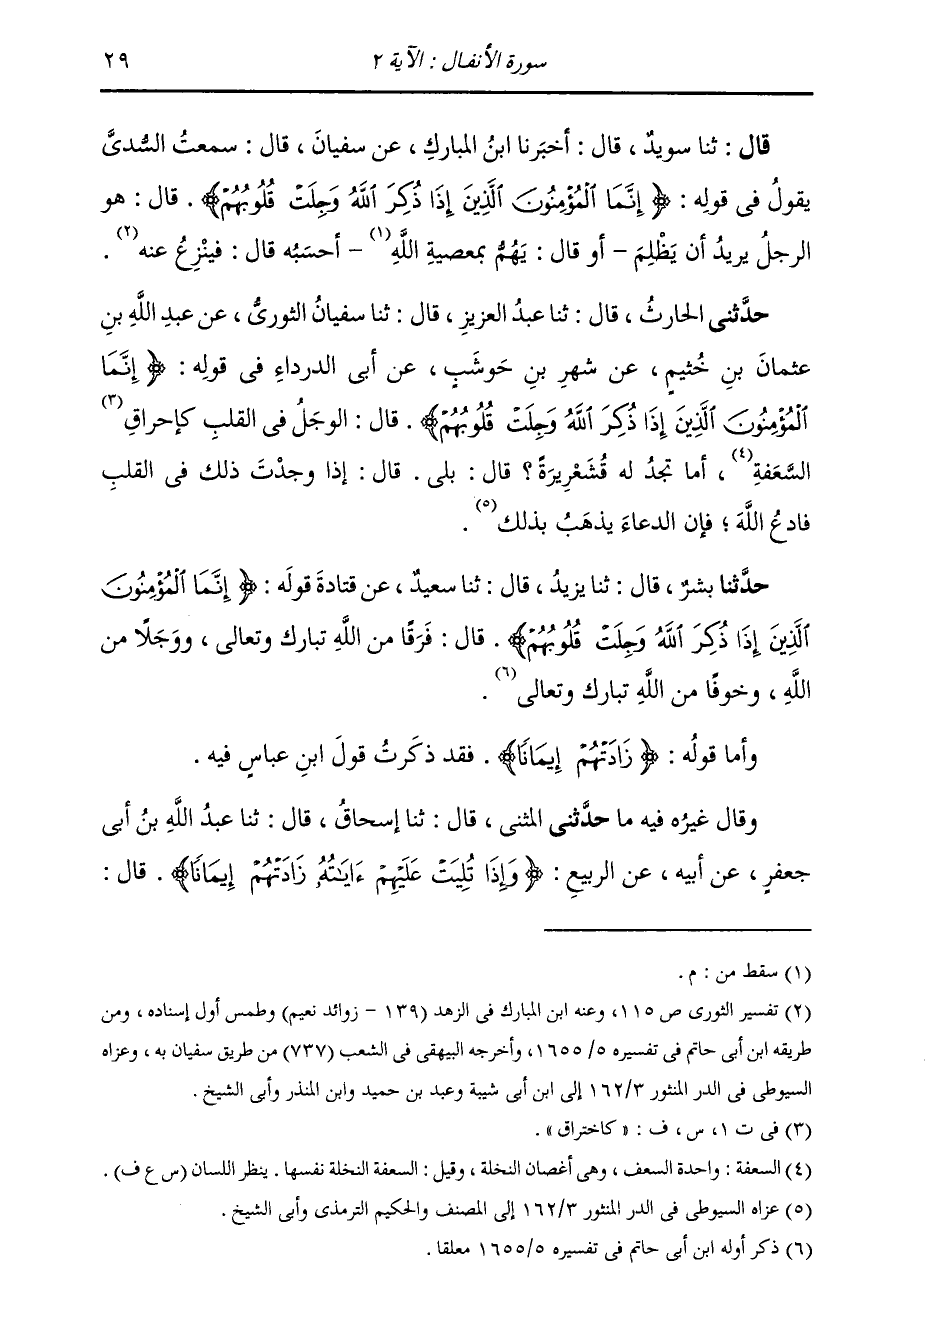 سورة الأنفال : الآية ٢ ٢٩
قال : ثنا سويدٌ ، قال : أخبَرنا ابنُ المباركِ ، عن سفيانَ ، قال : سمعتُ السُّدىَّ
يقولُ فى قولِه : ﴿ إِنَّمَا ٱلْمُؤْمِنُونَ ٱلَّذِينَ إِذَا ذُكِرَ ٱللَّهُ وَجِلَتْ قُلُوبُهُمْ﴾ . قال : هو
الرجلُ يريدُ أن يَظْلِمَ – أو قال : يَهُمُّ بمعصيةِ اللَّهِ(١) – أحسَبُه قال : فينْزِعُ عنه(٢) .
حدَّثنى الحارثُ ، قال : ثنا عبدُ العزيزِ ، قال : ثنا سفيانُ الثورىُّ ، عن عبدِ اللَّهِ بنِ
عثمانَ بنِ خُثيمٍ ، عن شهرِ بنِ حَوشَبٍ ، عن أبى الدرداءِ فى قولِه : ﴿ إِنَّمَا
ٱلْمُؤْمِنُونَ ٱلَّذِينَ إِذَا ذُكِرَ ٱللَّهُ وَجِلَتْ قُلُوبُهُمْ﴾ . قال : الوجَلُ فى القلبِ كإحراقِ(٣)
السَّعَفةِ(٤) ، أما تجدُ له قُشَعْرِيرَةً ؟ قال : بلى . قال : إذا وجدْتَ ذلك فى القلبِ
فادعُ اللَّهَ ؛ فإن الدعاءَ يذهَبُ بذلك(٥) .
حدَّثنا بشرٌ ، قال : ثنا يزيدُ ، قال : ثنا سعيدٌ ، عن قتادةَ قولَه : ﴿ إِنَّمَا ٱلْمُؤْمِنُونَ
ٱلَّذِينَ إِذَا ذُكِرَ ٱللَّهُ وَجِلَتْ قُلُوبُهُمْ﴾ . قال : فَرَقًا من اللَّهِ تبارك وتعالى ، ووَجَلًا من
اللَّهِ ، وخوفًا من اللَّهِ تبارك وتعالى(٦) .
وأما قولُه : ﴿ زَادَتْهُمْ إِيمَانًا﴾ . فقد ذكَرتُ قولَ ابنِ عباسٍ فيه .
وقال غيرُه فيه ما حدَّثنى المثنى ، قال : ثنا إسحاقُ ، قال : ثنا عبدُ اللَّهِ بنُ أبى
جعفرٍ ، عن أبيه ، عن الربيعِ : ﴿ وَإِذَا تُلِيَتْ عَلَيْهِمْ ءَايَٰتُهُۥ زَادَتْهُمْ إِيمَانًا﴾ . قال :
(١) سقط من : م .
(٢) تفسير الثورى ص ١١٥، وعنه ابن المبارك فى الزهد (١٣٩ – زوائد نعيم) وطمس أول إسناده ، ومن
طريقه ابن أبى حاتم فى تفسيره ٥/ ١٦٥٥، وأخرجه البيهقى فى الشعب (٧٣٧) من طريق سفيان به ، وعزاه
السيوطى فى الدر المنثور ١٦٢/٣ إلى ابن أبى شيبة وعبد بن حميد وابن المنذر وأبى الشيخ .
(٣) فى ت ١، س ، ف : « كاختراق » .
(٤) السعفة : واحدة السعف ، وهى أغصان النخلة ، وقيل : السعفة النخلة نفسها . ينظر اللسان (س ع ف) .
(٥) عزاه السيوطى فى الدر المنثور ١٦٢/٣ إلى المصنف والحكيم الترمذى وأبى الشيخ .
(٦) ذكر أوله ابن أبى حاتم فى تفسيره ١٦٥٥/٥ معلقا .